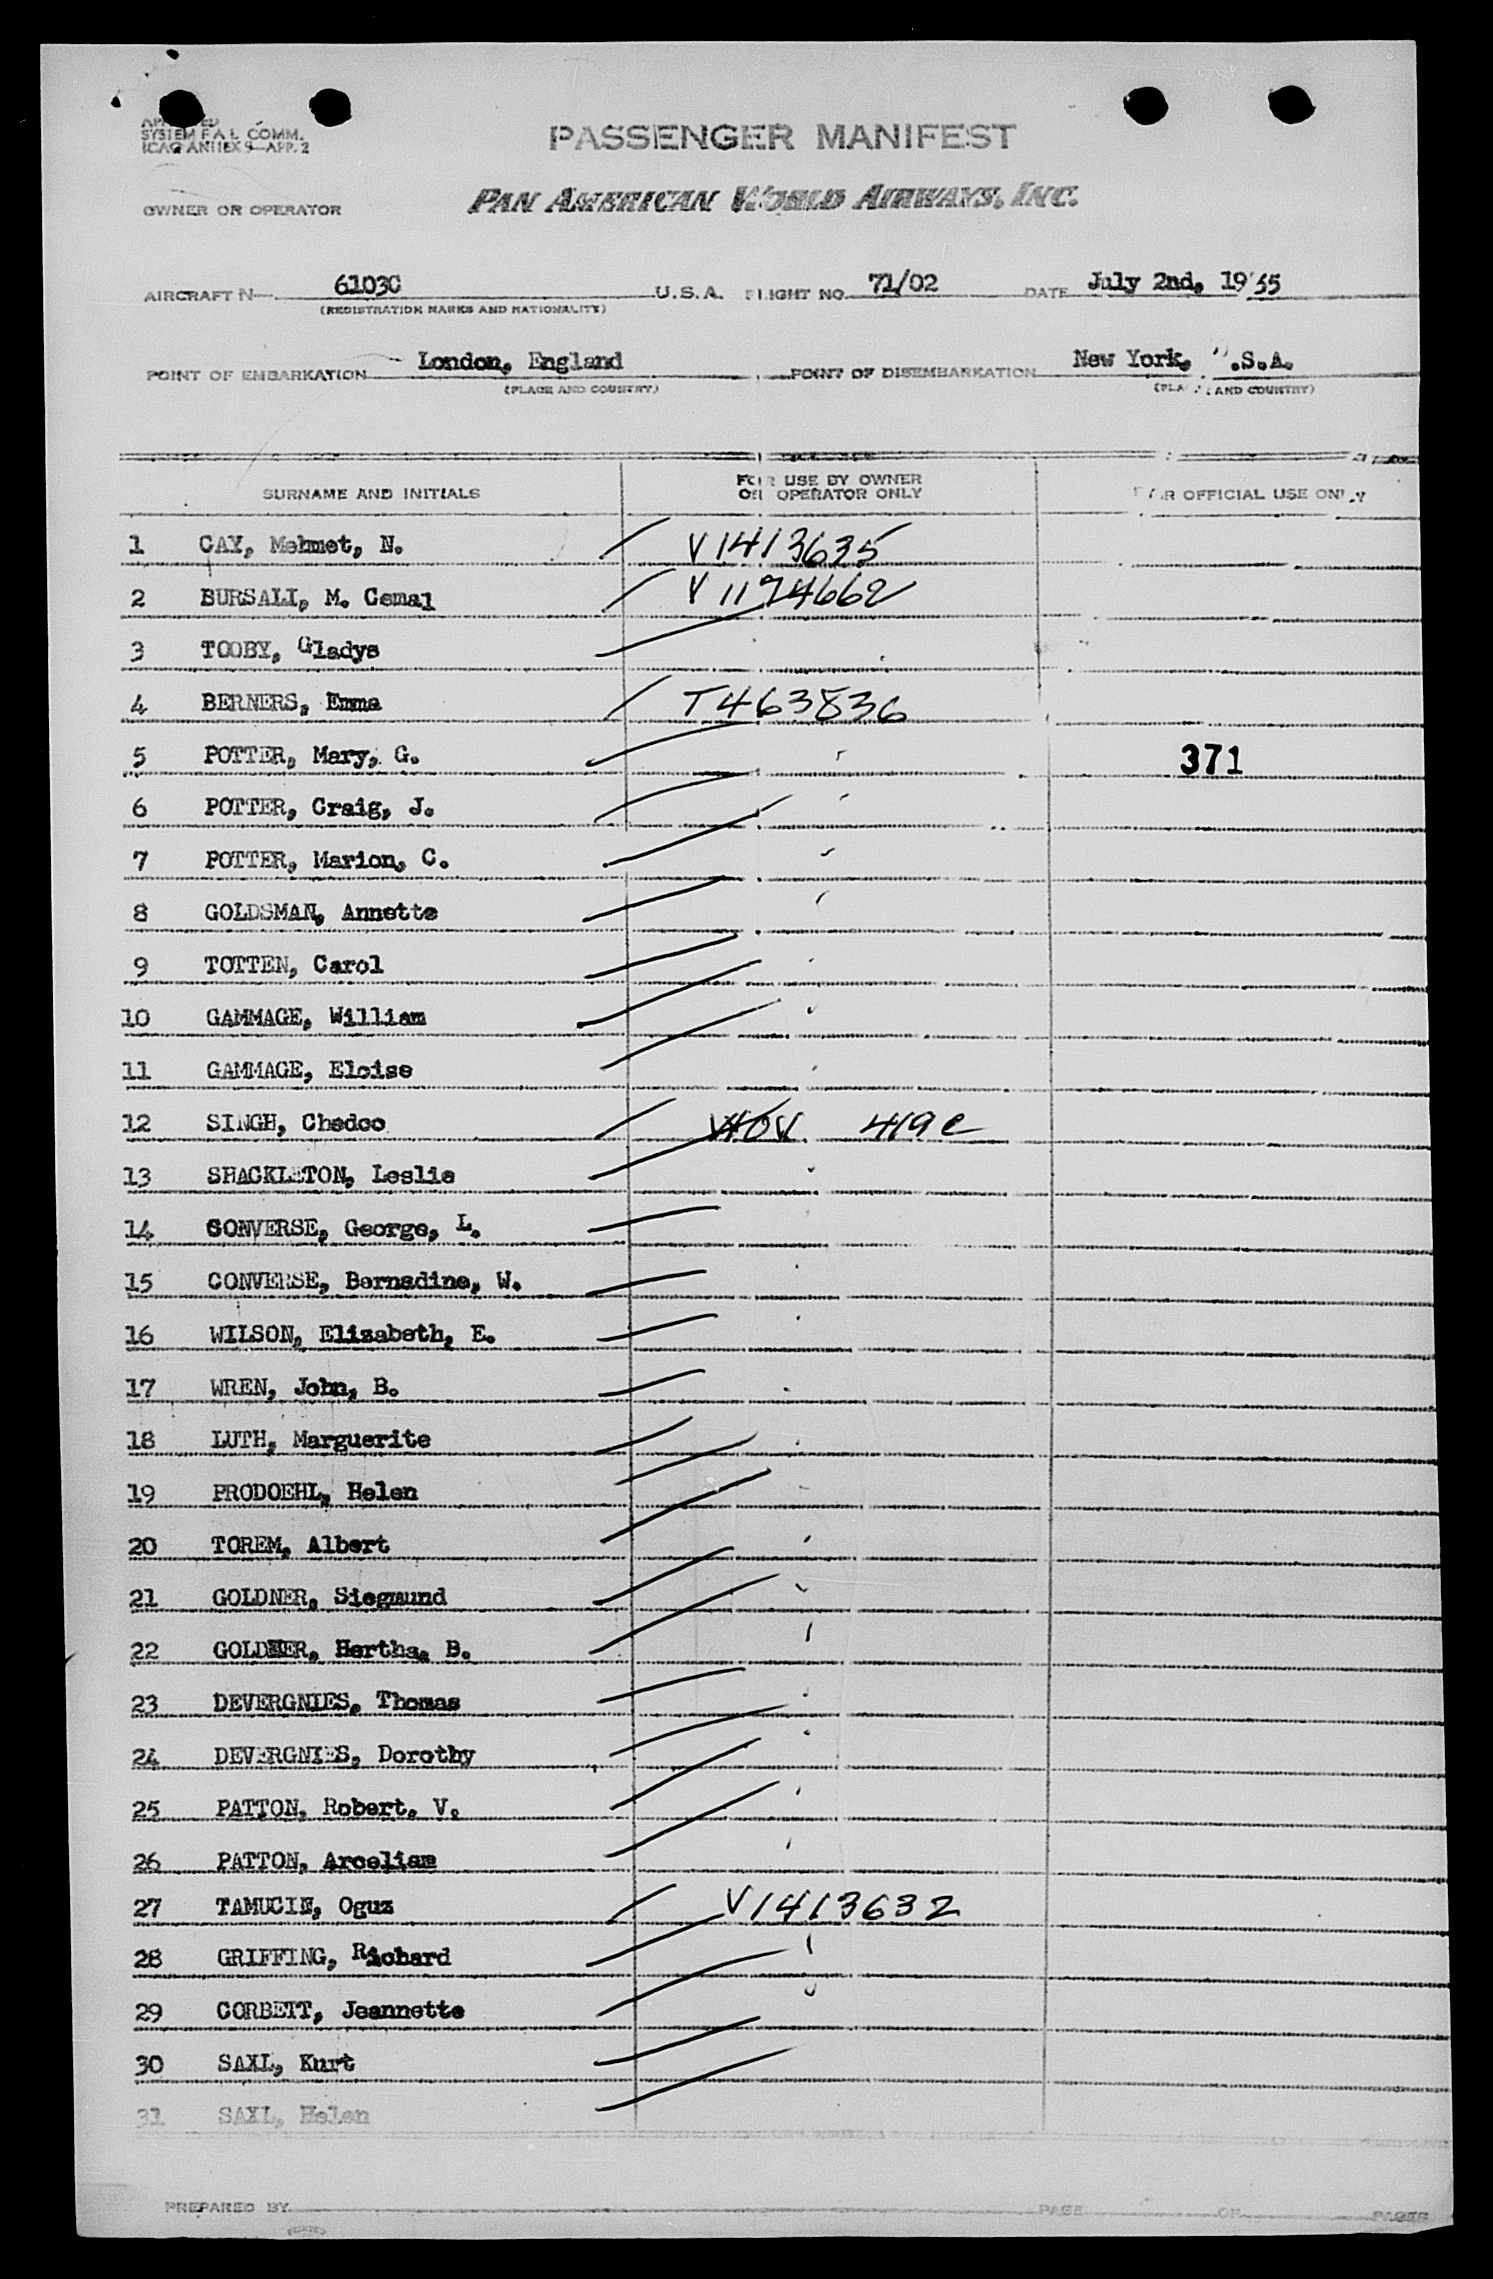 SYSTEM F A L COMM.
ICAO ANNEX 9—APP. 2
PASSENGER MANIFEST
OWNER OR OPERATOR PAN AMERICAN WORLD AIRWAYS, INC.
AIRCRAFT N— 6103C U.S.A. FLIGHT NO. 71/02 DATE July 2nd, 1955
(REGISTRATION MARKS AND NATIONALITY)
POINT OF EMBARKATION London, England POINT OF DISEMBARKATION New York, .S.A.
(PLACE AND COUNTRY) (PLACE AND COUNTRY)
SURNAME AND INITIALS FOR USE BY OWNER OR OPERATOR ONLY FOR OFFICIAL USE ONLY
1 CAY, Mehmet, N. V1413635
2 BURSALI, M. Cemal V1194662
3 TOOBY, Gladys
4 BERNERS, Emma T463836
5 POTTER, Mary, G. 371
6 POTTER, Craig, J.
7 POTTER, Marion, C.
8 GOLDSMAN, Annette
9 TOTTEN, Carol
10 GAMMAGE, William
11 GAMMAGE, Eloise
12 SINGH, Chedco 419c
13 SHACKLETON, Leslie
14 CONVERSE, George, L.
15 CONVERSE, Bernadine, W.
16 WILSON, Elizabeth, E.
17 WREN, John, B.
18 LUTH, Marguerite
19 PRODOEHL, Helen
20 TOREM, Albert
21 GOLDNER, Siegmund
22 GOLDNER, Hertha, B.
23 DEVERGNIES, Thomas
24 DEVERGNIES, Dorothy
25 PATTON, Robert, V.
26 PATTON, Arceliam
27 TAMUCIN, Oguz V1413632
28 GRIFFING, Richard
29 CORBETT, Jeannette
30 SAXL, Kurt
31 SAXL, Helen
PREPARED BY PAGE OF PAGES